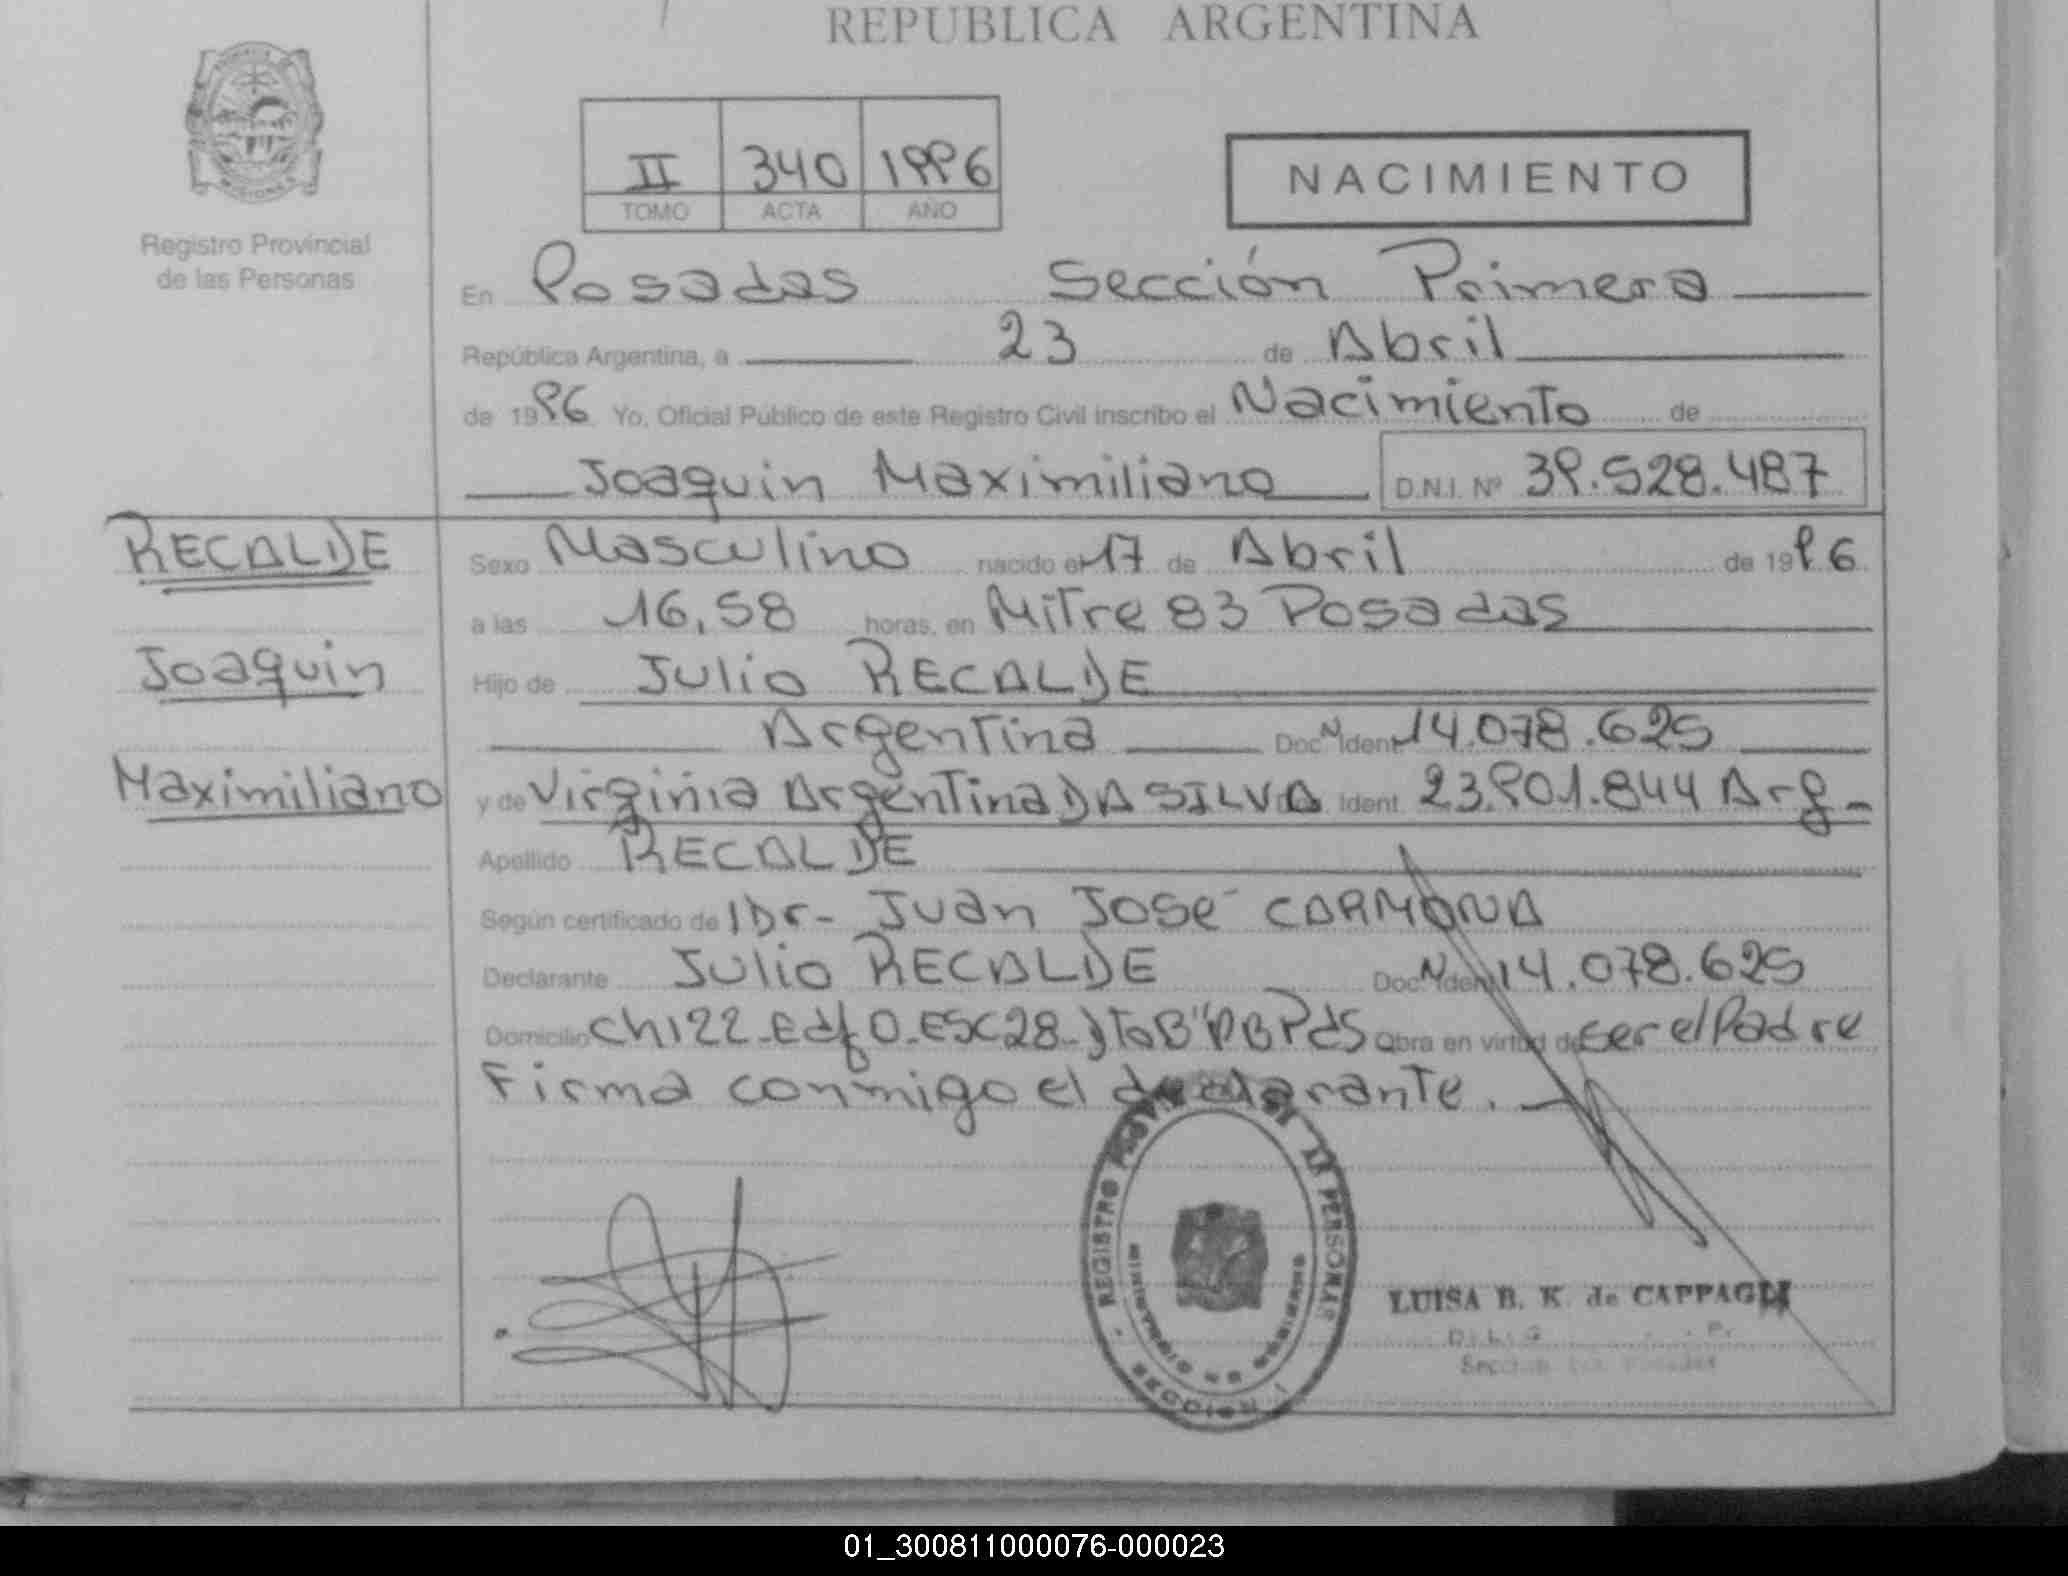 REPUBLICA ARGENTINA
MISIONES
Registro Provincial
de las Personas
II 340 1996
TOMO ACTA AÑO
NACIMIENTO
En Posadas Sección Primera
República Argentina, a 23 de Abril
de 1996 Yo, Oficial Público de este Registro Civil inscribo el Nacimiento de
Joaquin Maximiliano D.N.I. Nº 39.528.487
RECALDE
Joaquin
Maximiliano
Sexo Masculino nacido el 17 de Abril de 1996
a las 16,58 horas, en Mitre 83 Posadas
Hijo de Julio RECALDE
Argentina Doc N Ident 14.078.625
y de Virginia Argentina DA SILVA Ident. 23.901.844 Arg-
Apellido RECALDE
Según certificado de l Dr- Juan José CARMONA
Declarante Julio RECALDE Doc N Ident 14.078.625
Domicilio Ch122-Edf0-ESC28-DToB"PB Pds Obra en virtud de ser el Padre
Firma conmigo el declarante.
REGISTRO DE LAS PERSONAS
MINISTERIO DE GOBIERNO
SECCION 1
LUISA B. K. de CAPPAGLI
01_300811000076-000023